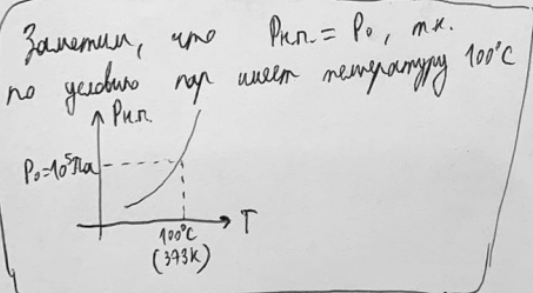 Заметим, что Pн.п. = P₀, т.к.
по условию пар имеет температуру 100°C
Pн.п.
P₀=10⁵Па
T
100°C
(373K)